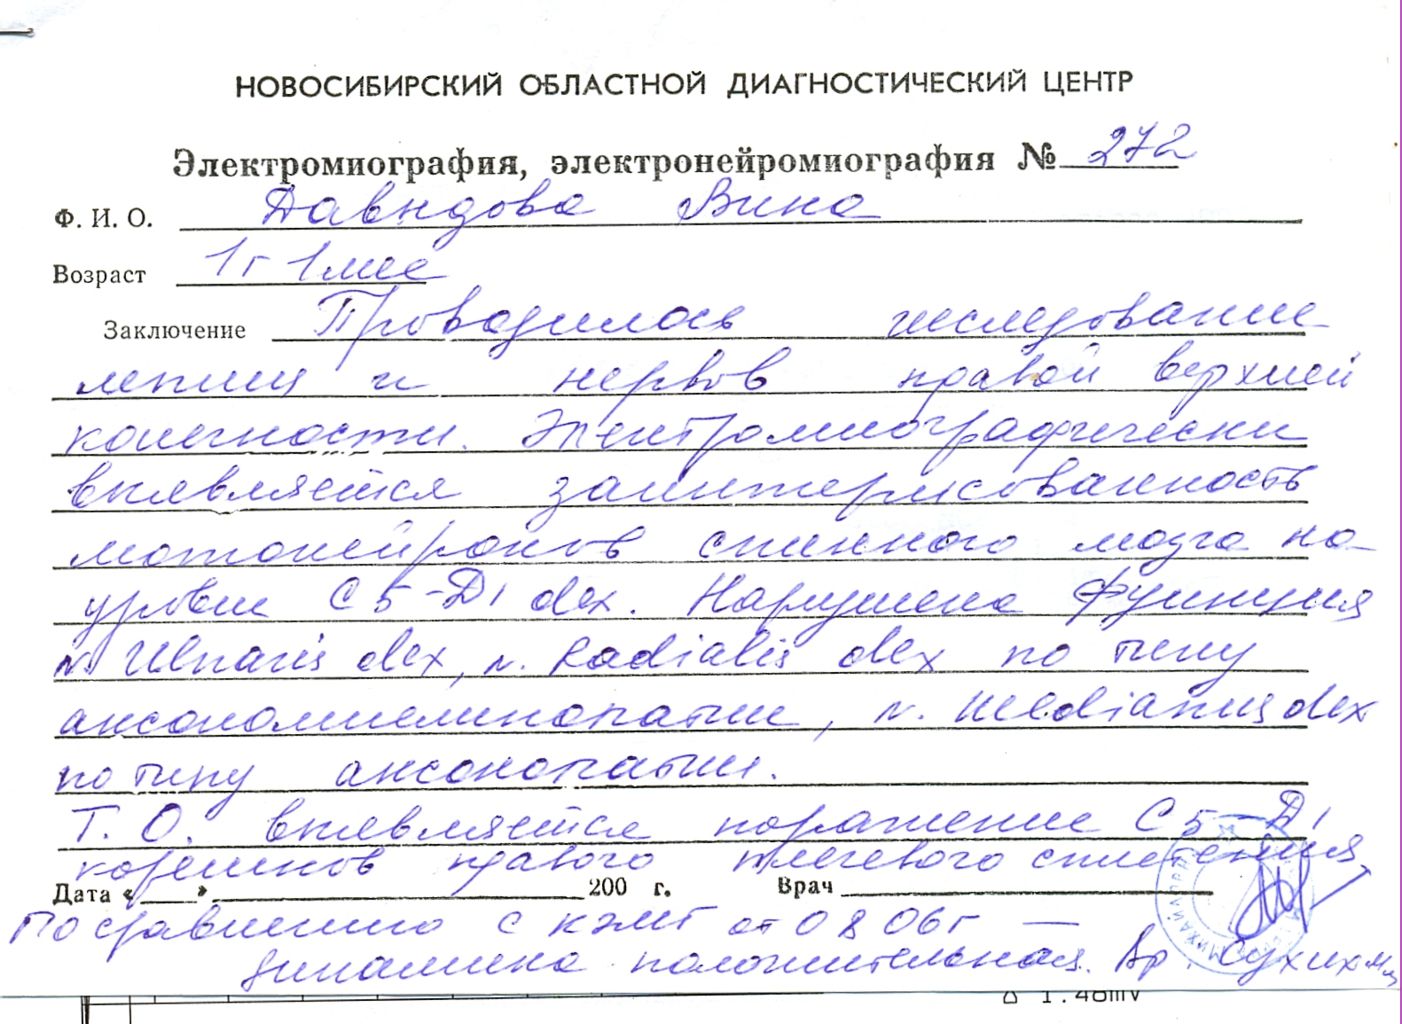 НОВОСИБИРСКИЙ ОБЛАСТНОЙ ДИАГНОСТИЧЕСКИЙ ЦЕНТР
Электромиография, электронейромиография № 272
Ф. И. О. Давыдова Вика
Возраст 1 г 1 мес
Заключение Проводилось исследование
мышц и нервов правой верхней
конечности. Электромиографически
выявляется заинтересованность
мотонейронов спинного мозга на
уровне С5-D1 dex. Нарушена функция
n. Ulnaris dex, n. Radialis dex по типу
аксономиелинопатии, n. medianus dex
по типу аксонопатии.
Т. О. выявляется поражение С5-D1
корешков правого плечевого сплетения
Дата « » 200 г. Врач
По сравнению с КЭМГ от 08 06г —
динамика положительная. Вр. Сухих
1.48mV